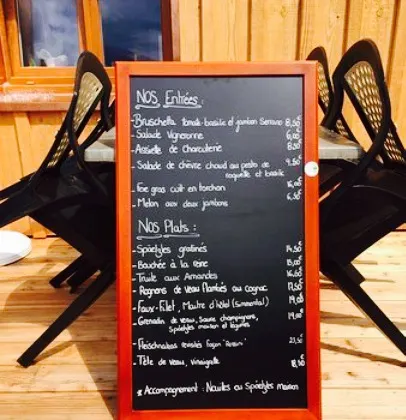 Nos Entrées :
- Bruschetta tomate-basilic et jambon Serrano 8,50€
- Salade Vigneronne 6,00€
- Assiette de Charcuterie 8,50€
- Salade de chèvre chaud au pesto de 9,50€
roquette et basilic
- Foie gras cuit en torchon 16,00€
- Melon aux deux jambons 6,50€
Nos Plats :
- Spaetzles gratinés 14,50€
- Bouchée à la reine 15,00€
- Truite aux Amandes 16,50€
- Rognons de veau flambés au cognac 17,50€
- Faux-Filet, Maître d'hôtel (Simmental) 19,00€
- Grenadin de veau, sauce champignons, 19,00€
Spaetzles maison et légumes
- Fleischnakas revisités façon "Rossini" 23,50€
- Tête de veau, vinaigrette 18,50€
* Accompagnement : Nouilles ou Spaetzles maison